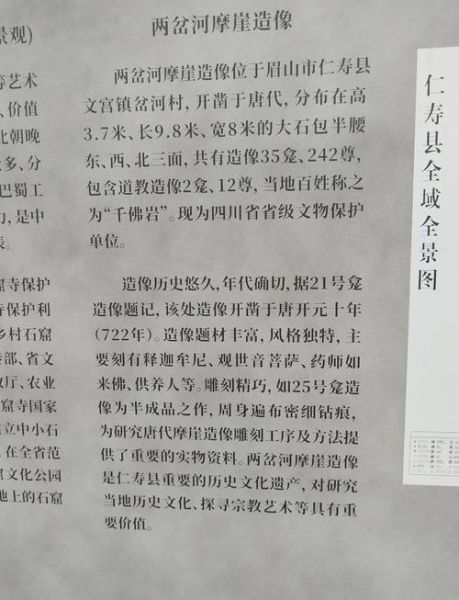 景观)
等艺术
、价值
北朝晚
众多、分
巴蜀工
力,是中
表。
窟寺保护
寺保护利
乡村石窟
传部、省文
政厅、农业
窟寺国家
建立中小石
,在全省范
窟文化公园
地上的石窟
两岔河摩崖造像
两岔河摩崖造像位于眉山市仁寿县
文宫镇岔河村,开凿于唐代,分布在高
3.7米、长9.8米、宽8米的大石包半腰
东、西、北三面,共有造像35龛、242尊,
包含道教造像2龛、12尊,当地百姓称之
为“千佛岩”。现为四川省省级文物保护
单位。
造像历史悠久,年代确切,据21号龛
造像题记,该处造像开凿于唐开元十年
(722年)。造像题材丰富,风格独特,主
要刻有释迦牟尼、观世音菩萨、药师如
来佛、供养人等。雕刻精巧,如25号龛造
像为半成品之作,周身遍布密细钻痕,
为研究唐代摩崖造像雕刻工序及方法提
供了重要的实物资料。两岔河摩崖造像
是仁寿县重要的历史文化遗产,对研究
当地历史文化、探寻宗教艺术等具有重
要价值。
仁寿县全域全景图